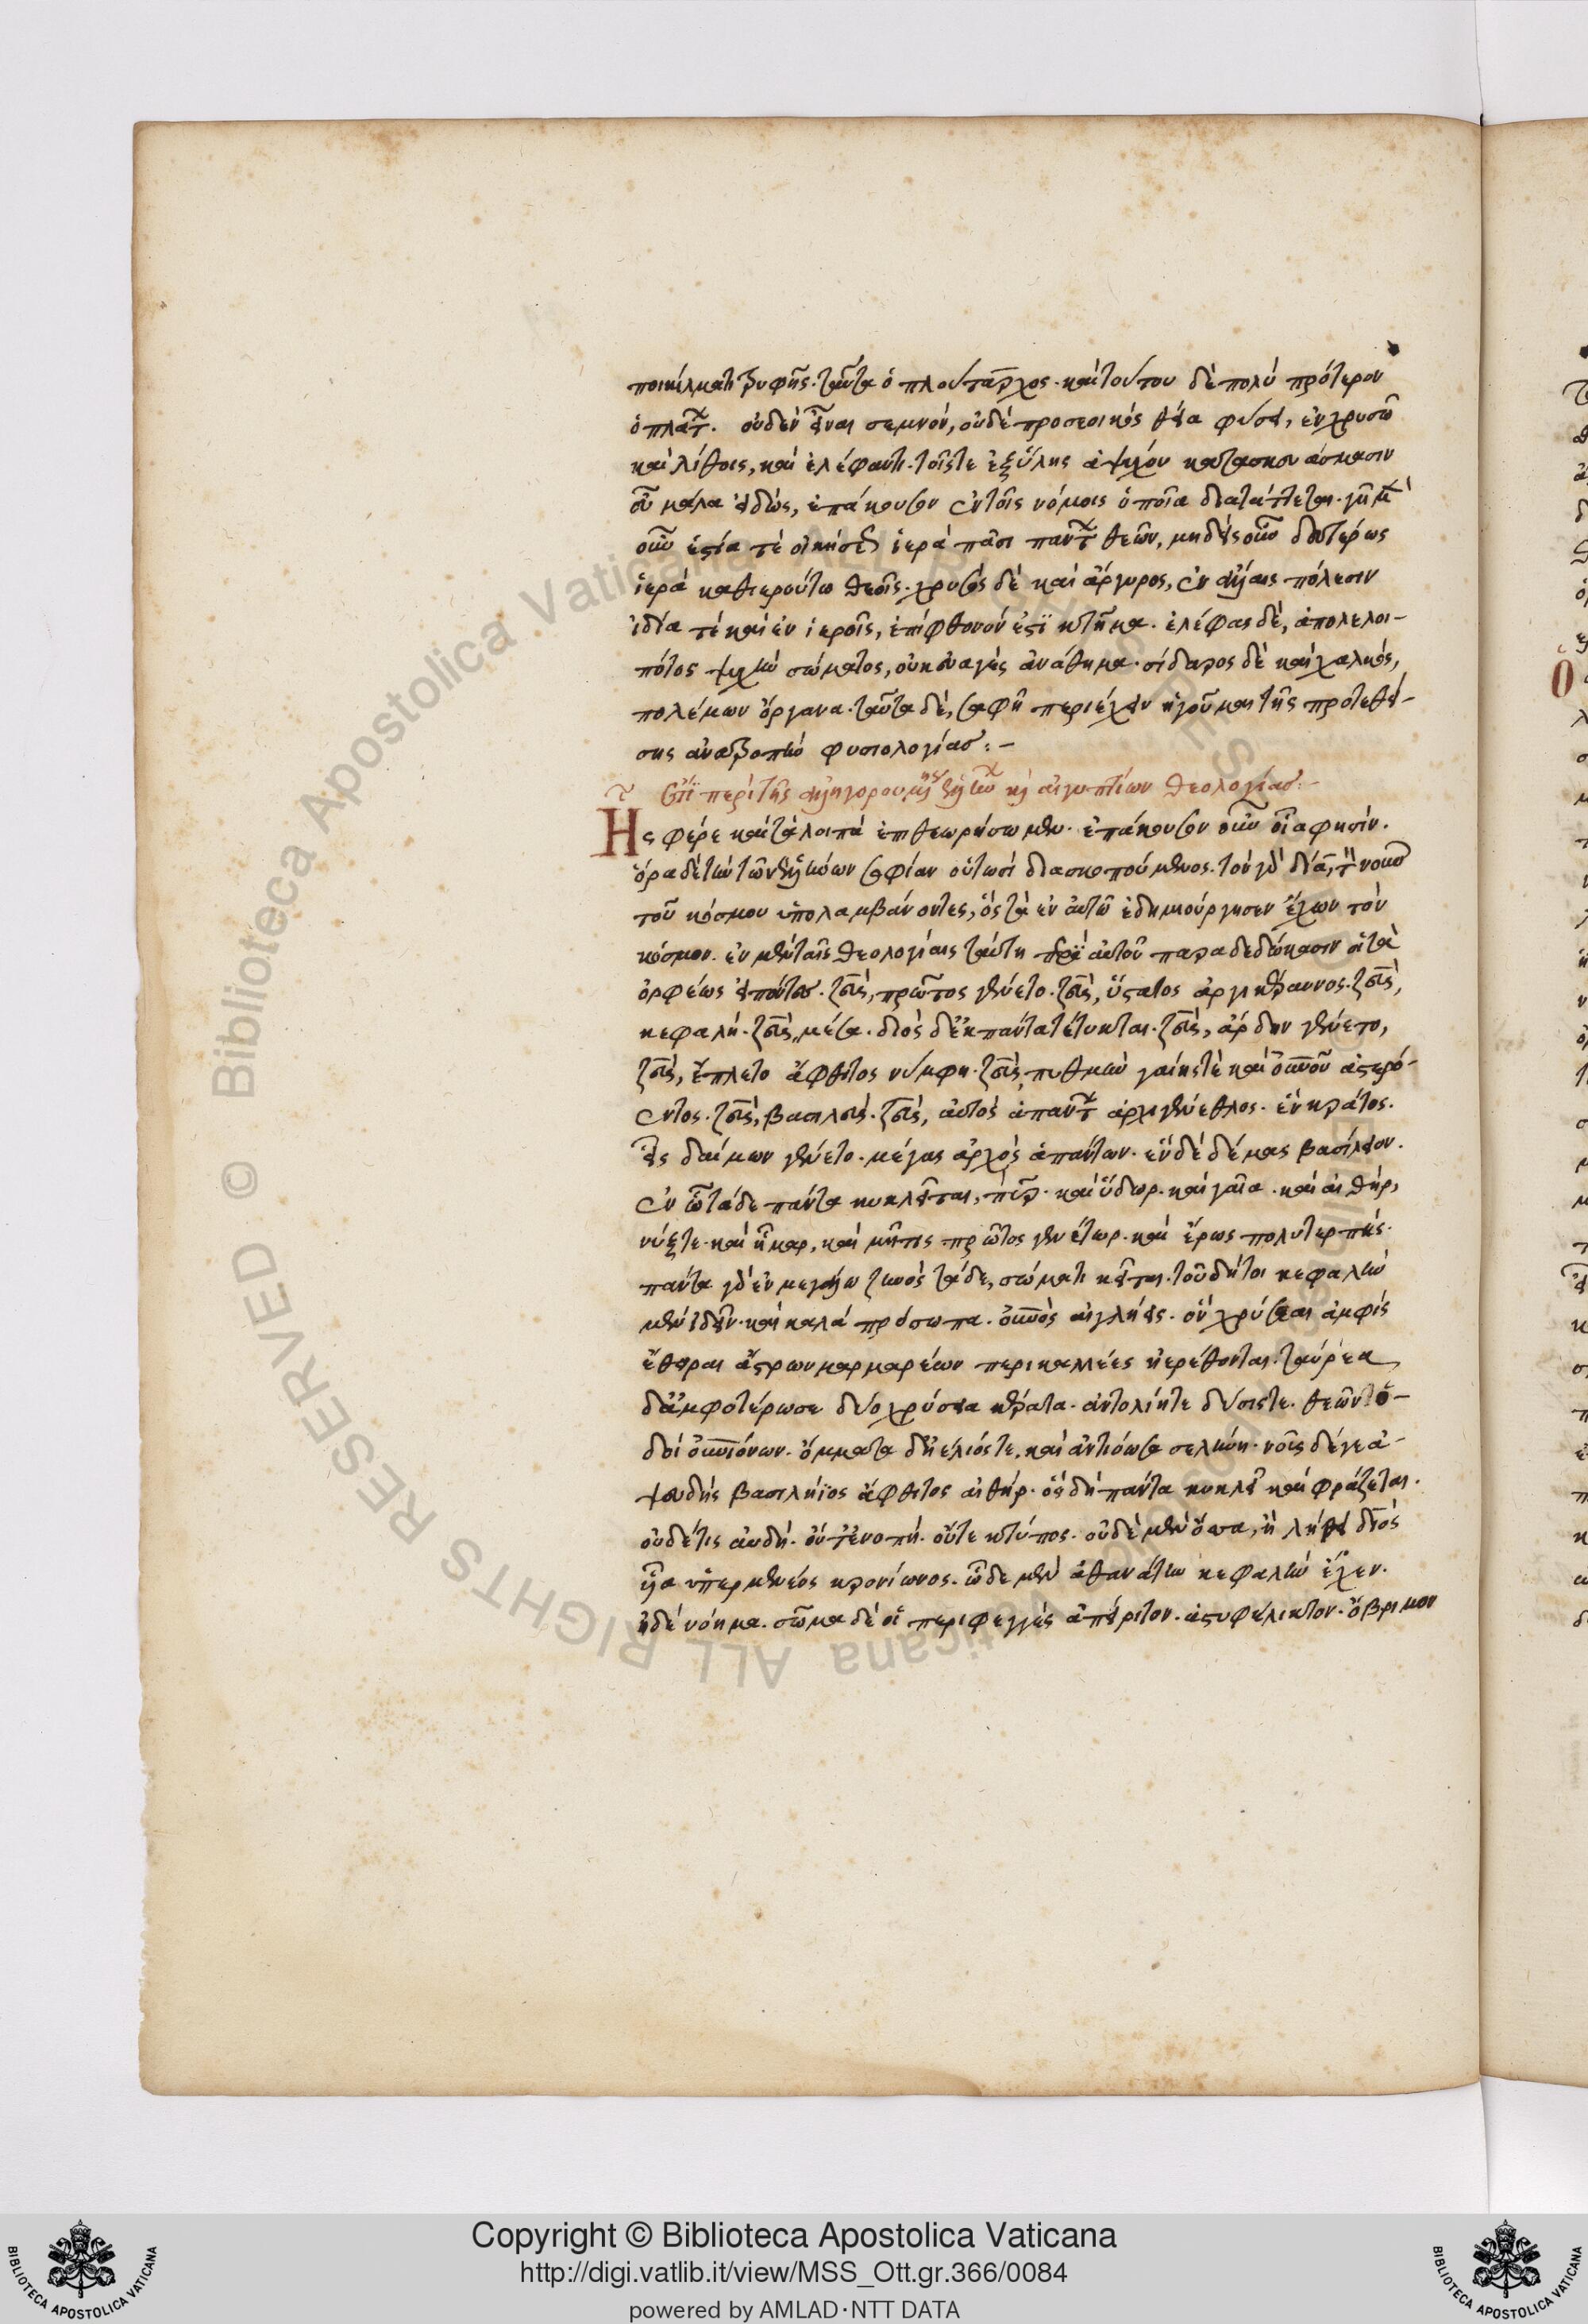 ποικίλματι τρυφῆς. ταῦτα ὁ πλούταρχος. καὶ τούτου δὲ πολὺ πρότερον
ὁ πλάτων. οὐδὲν εἶναι σεμνόν, οὐδὲ προσεοικὸς θεία φύσει, ἐν χρυσῶ
καὶ λίθοις, καὶ ἐλέφαντι. τοῖς τε ἐξ ὕλης ἀψύχου κατασκευάσμασιν
εὖ μάλα εἰδώς, ἐπάκουσον ἐν τοῖς νόμοις ὁποῖα διατάττεται. γῆ μὲν
οὖν ἑστία τὲ οἰκήσεως ἱερὰ πᾶσι πάντων θεῶν, μηδεὶς οὖν δευτέρως
ἱερὰ καθιερούτω θεοῖς. χρυσὸς δὲ καὶ ἄργυρος, ἐν ἄλλαις πόλεσιν
ἰδία τὲ καὶ ἐν ἱεροῖς, ἐπίφθονόν ἐστι κτῆμα. ἐλέφας δὲ, ἀπολελοι-
πότος ψυχὴν σώματος, οὐκ εὐαγὲς ἀνάθημα. σίδαρος δὲ καὶ χαλκός,
πολέμων ὄργανα. ταῦτα δὲ, σαφῆ περιέχειν ἡγοῦμαι τῆς προτεθεί-
σης ἀνατροπὴν φυσιολογίας:-
Ἔτι περὶ τῆς ἀλληγορουμένης ἑλλήνων καὶ αἰγυπτίων θεολογίας:-
Ης φέρε καὶ τὰ λοιπὰ ἐπιθεωρήσωμεν. ἐπάκουσον οὖν οἷα φησίν.
ὅρα δὲ τὴν τῶν ἑλλήνων σοφίαν οὑτωσὶ διασκοπούμενος. τὸν γὰρ δία, τὸν νοῦν
τοῦ κόσμου ὑπολαμβάνοντες, ὃς τὰ ἐν αὐτῶ ἐδημιούργησεν ἔχων τὸν
κόσμον. ἐν μὲν ταῖς θεολογίαις ταύτη περὶ αὐτοῦ παραδεδώκασιν οἱ τὰ
ὀρφέως εἰπόντες. ζεὺς, πρῶτος γένετο. ζεὺς, ὕστατος ἀργικέραυνος. ζεὺς,
κεφαλή. ζεὺς, μέσα. διὸς δ' ἐκ πάντα τέτυκται. ζεὺς, ἄρσην γένετο,
ζεὺς, ἔπλετο ἄφθιτος νύμφη. ζεὺς, πυθμὴν γαίης τὲ καὶ οὐρανοῦ ἀστερό-
εντος. ζεὺς, βασιλεὺς. ζεὺς, αὐτὸς ἁπάντων ἀρχιγένεθλος. ἓν κράτος.
εἷς δαίμων γένετο. μέγας ἀρχὸς ἁπάντων. ἓν δὲ δέμας βασίλειον.
ἐν ὧ τάδε πάντα κυκλεῖται, πῦρ. καὶ ὕδωρ. καὶ γαῖα. καὶ αἰθὴρ,
νύξ τε. καὶ ἦμαρ, καὶ μῆτις πρῶτος γενέτωρ. καὶ ἔρως πολυτερπὴς.
πάντα γὰρ ἐν μεγάλω ζηνὸς τάδε, σώματι κεῖται. τοῦ δήτοι κεφαλὴν
μὲν ἰδεῖν. καὶ καλὰ πρόσωπα. οὐρανὸς αἰγλήεις. ὃν χρύσεαι ἀμφὶς
ἔθειραι ἄστρων μαρμαρέων περικαλλέες ἠερέθονται. ταύρεα
δ' ἀμφοτέρωσε δύο χρύσεια κέρατα. ἀντολίη τε δύσις τε. θεῶν ὁ-
δοὶ οὐρανιόνων. ὄμματα δ' ἠέλιός τε, καὶ ἀντιόωσα σελήνη. νοῦς δέ γε ἀ-
ψευδὴς βασιλήϊος ἄφθιτος αἰθήρ. ὃς δὴ πάντα κυκλεῖ καὶ φράζεται.
οὐδέ τις αὐδὴ. οὔτ' ἐνοπὴ. οὔτε κτύπος. οὐδὲ μὲν ὄσσα, ἣ λήθει διὸς
ἦα ὑπερμενέος κρονίωνος. ὧδε μὲν ἀθανάτην κεφαλὴν ἔχεν.
ἠδὲ νόημα. σῶμα δὲ οἱ περιφεγγὲς ἀπείριτον. ἀστυφέλικτον. ὄβριμον
Copyright © Biblioteca Apostolica Vaticana
http://digi.vatlib.it/view/MSS_Ott.gr.366/0084
powered by AMLAD·NTT DATA